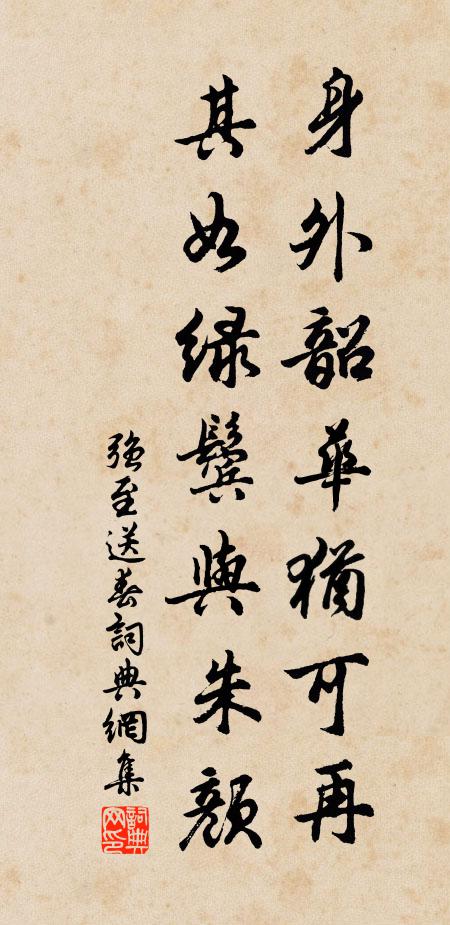 身外韶華猶可再
其如緑鬢與朱顔
強至送春詞典網集
詞典網印